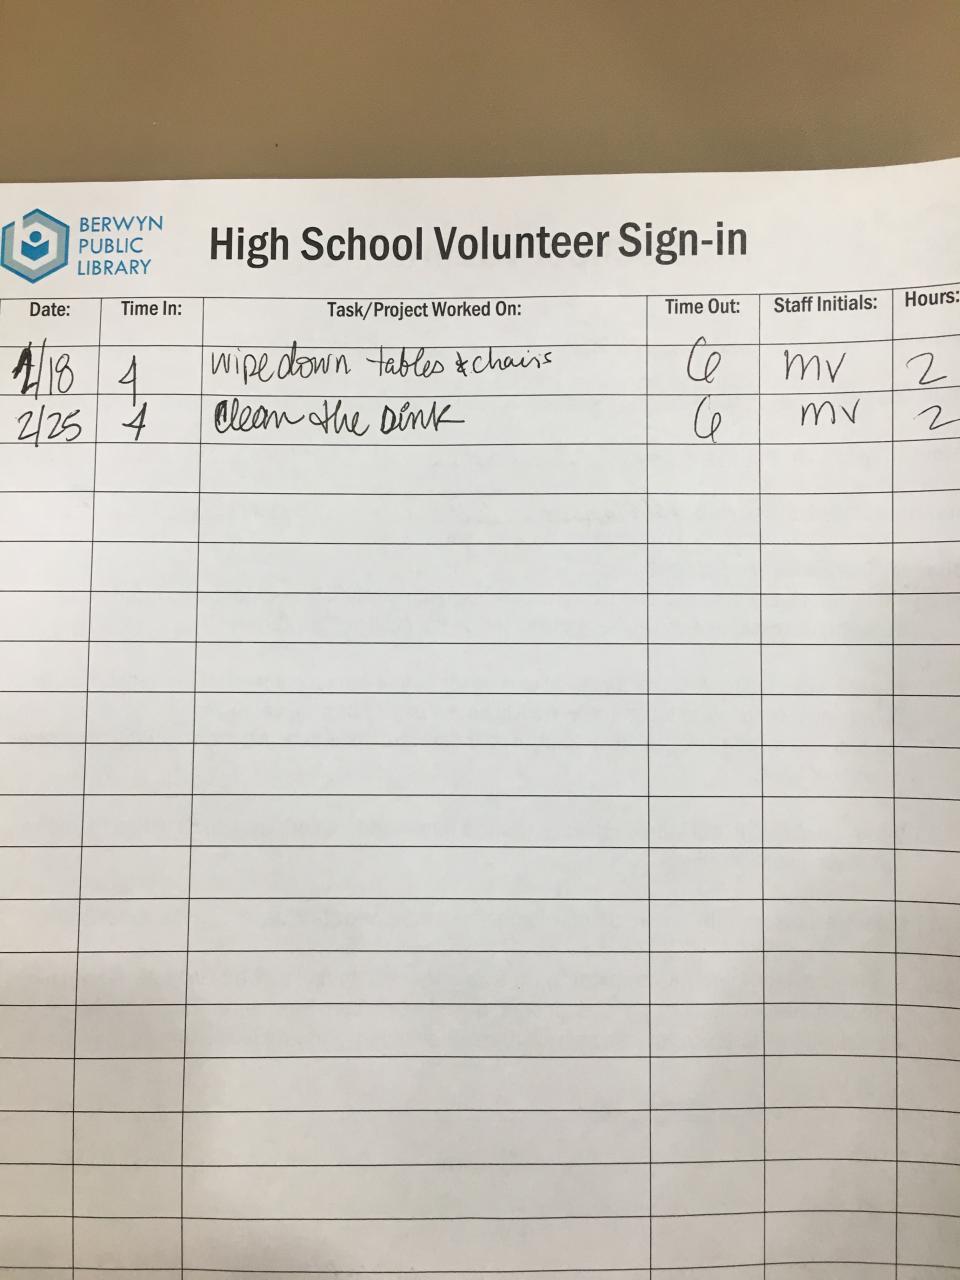 BERWYN
PUBLIC
LIBRARY
High School Volunteer Sign-in
Date: Time In: Task/Project Worked On: Time Out: Staff Initials: Hours:
2/18 4 wipe down tables & chairs 6 mv 2
2/25 4 Clean the sink 6 mv 2